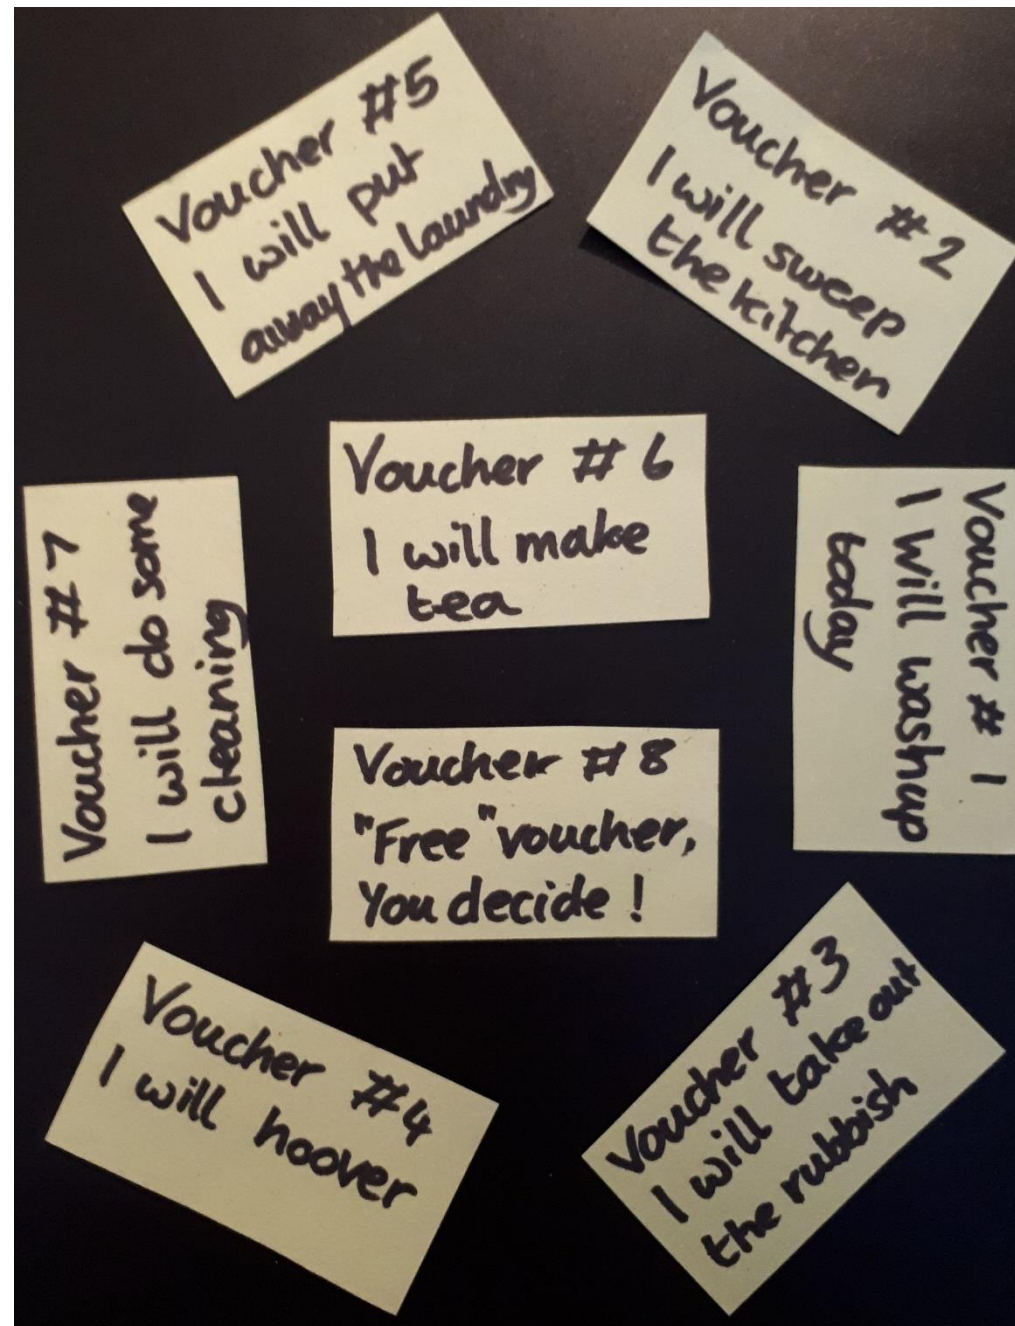 Voucher #5
I will put
away the laundry
Voucher #2
I will sweep
the kitchen
Voucher #6
I will make
tea
Voucher #7
I will do some
cleaning
Voucher #1
I will washup
today
Voucher #8
"Free" voucher,
You decide!
Voucher #4
I will hoover
Voucher #3
I will take out
the rubbish